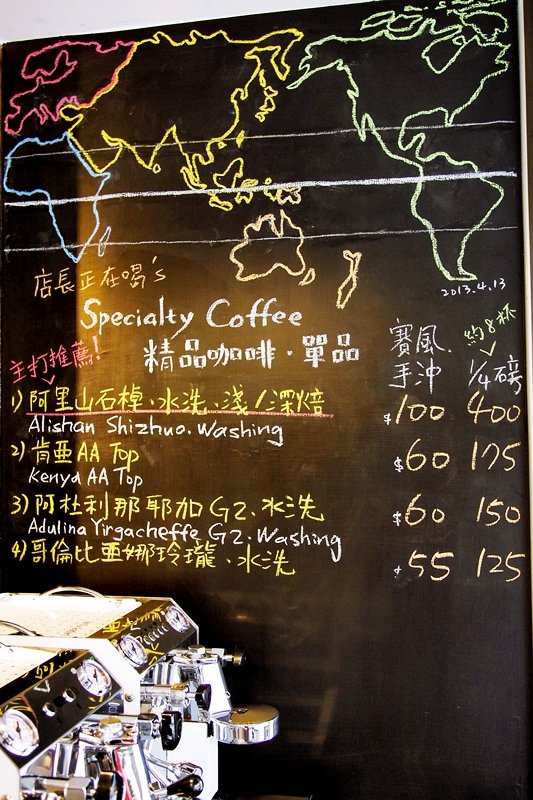 2013.4.13
店長正在喝's
Specialty Coffee
精品咖啡·單品
賽風.
手沖
約8杯
1/4磅
主打推薦!
1)阿里山石棹、水洗、淺/深焙 $100 400
Alishan Shizhuo. Washing
2)肯亞AA Top $60 175
Kenya AA Top
3)阿杜利那耶加G2.水洗 $60 150
Adulina Yirgacheffe G2. Washing
4)哥倫比亞娜玲瓏、水洗 $55 125